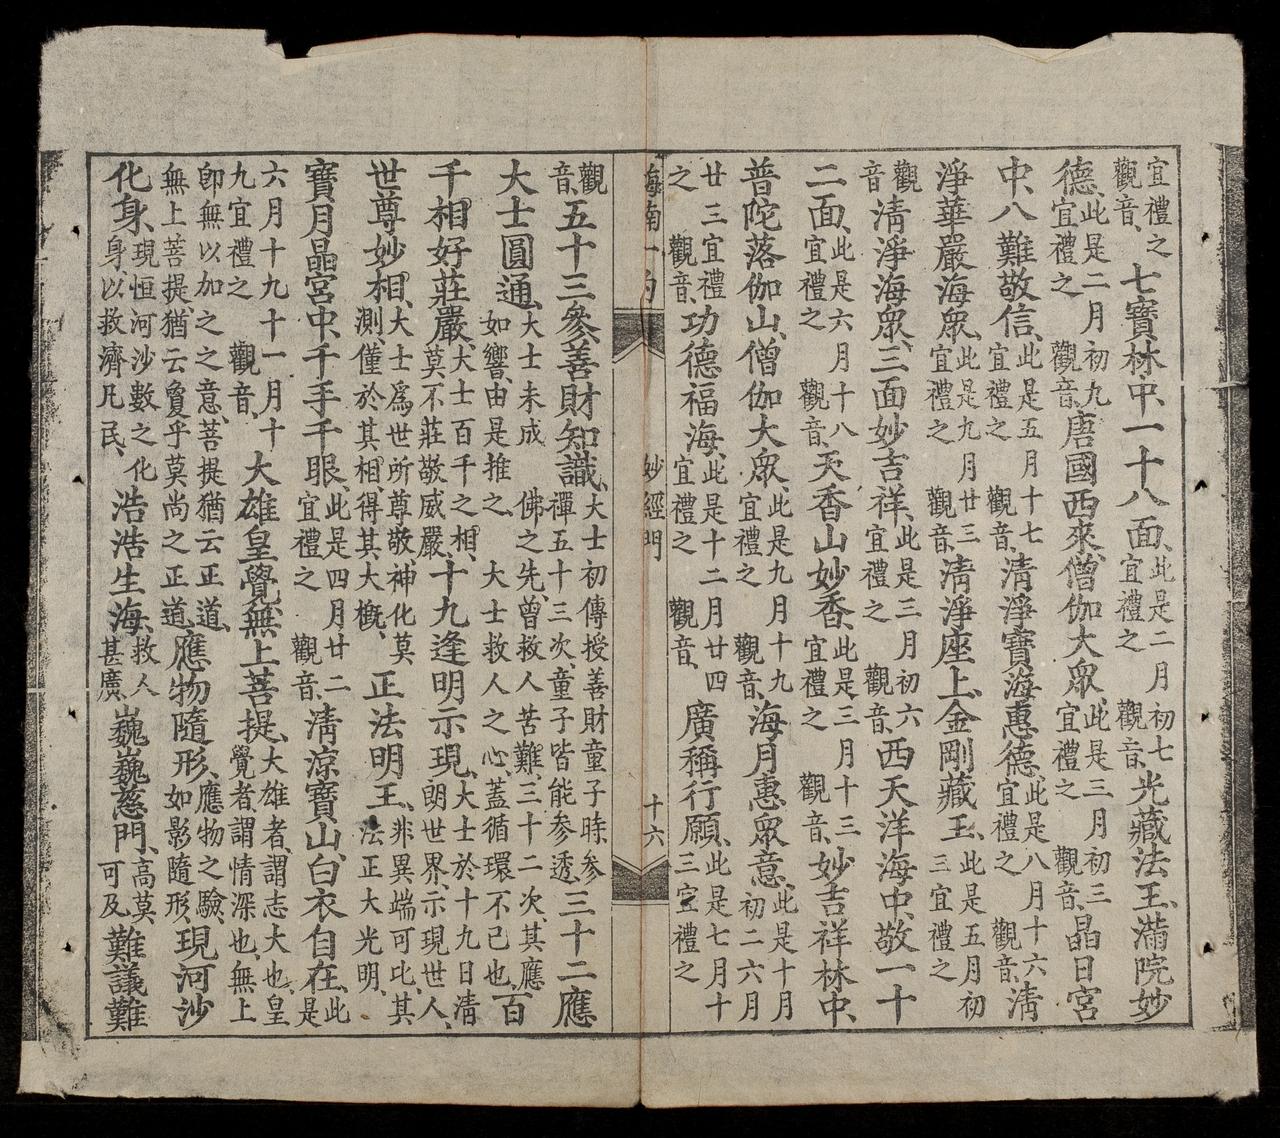 宜禮之 觀音、七寶林中、一十八面、此是二月初七宜禮之 觀音、光藏法王、滿院妙
德、此是二月初九宜禮之 觀音、唐國西來、僧伽大眾、此是三月初三宜禮之 觀音、晶日宮
中、八難敬信、此是五月十七宜禮之 觀音、清淨寶海惠德、此是八月十六宜禮之 觀音、清
淨華嚴海眾、此是九月廿三宜禮之 觀音、清淨座上、金剛藏王、此是五月初三宜禮之
觀音、清淨海眾、三面妙吉祥、此是三月初六宜禮之 觀音、西天洋海中、敬一十
二面、此是六月十八宜禮之 觀音、天香山妙香、此是三月十三宜禮之 觀音、妙吉祥林中、
普陀落伽山、僧伽大眾、此是九月十九宜禮之 觀音、海月惠眾意、此是十月初二六月
廿三宜禮之 觀音、功德福海、此是十二月廿四宜禮之 觀音、廣稱行願、此是七月十三宜禮之
海南一勺 妙經門 十六
觀音、五十三參善財知識、大士初傳授善財童子時、參禪五十三次、童子皆能參透、三十二應
大士圓通、大士未成 佛之先、曾救人苦難、三十二次、其應如響、由是推之、 大士救人之心、蓋循環不已也、百
千相好莊嚴、大士百千之相、莫不莊敬威嚴、十九逢明示現、大士於十九日清朗世界、示現世人、
世尊妙相、大士為世所尊敬、神化莫測、僅於其相、得其大概、正法明王、非異端可比、其法正大光明、
寶月晶宮中、千手千眼、此是四月廿二宜禮之 觀音、清涼寶山、白衣自在、此是
六月十九十一月十九宜禮之 觀音、大雄皇覺無上菩提、大雄者、謂志大也、皇覺者、謂情深也、無上
即無以加之之意、菩提猶云正道、無上菩提、猶云敻乎莫尚之正道、應物隨形、應物之驗、如影隨形、現河沙
化身、現恒河沙數之化身、以救濟凡民、浩浩生海、救人甚廣、巍巍慈門、高莫可及、難議難